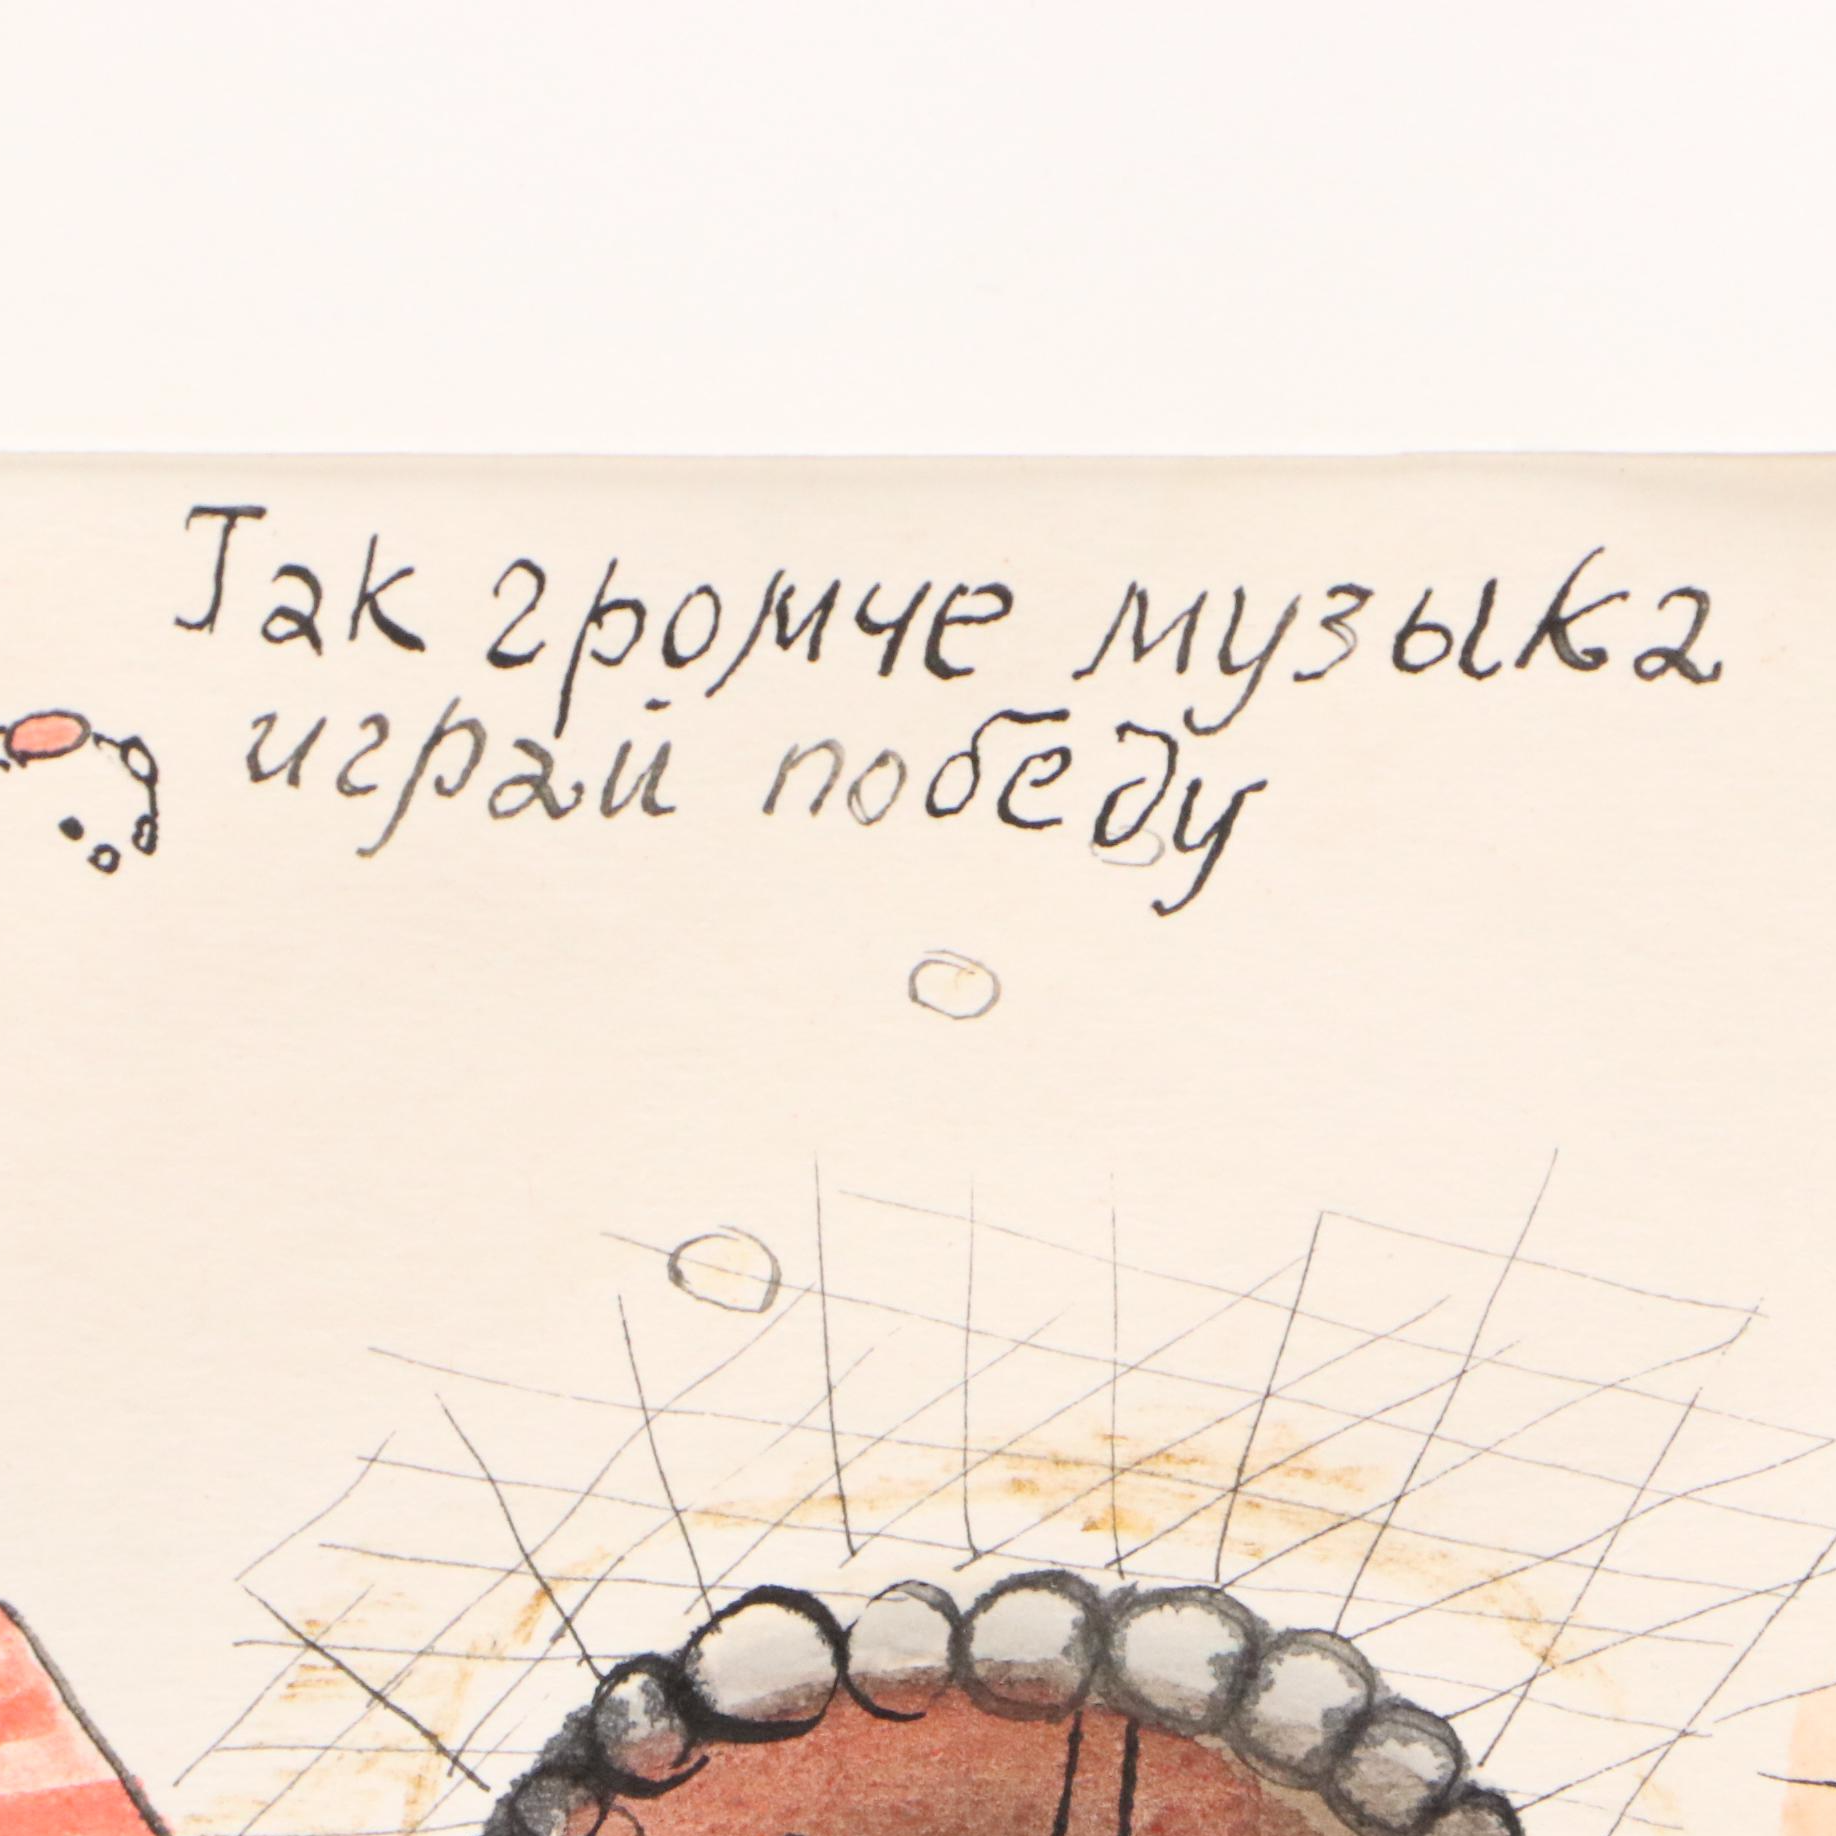 Так громче музыка
играй победу